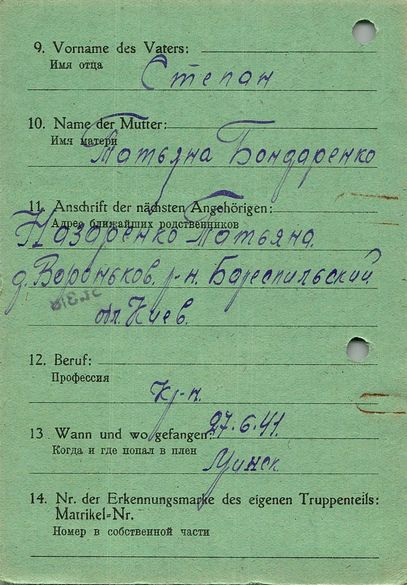 9. Vorname des Vaters:
Имя отца
Степан
10. Name der Mutter:
Имя матери
Татьяна Бондаренко
11. Anschrift der nächsten Angehörigen:
Адрес ближайших родственников
Назаренко Татьяна.
д. Вороньков. р-н. Бореспильский
обл. Киев.
12. Beruf:
Профессия
Кр-н.
13 Wann und wo gefangen:
27.6.41.
Когда и где попал в плен
Минск
14. Nr. der Erkennungsmarke des eigenen Truppenteils:
Matrikel-Nr.
Номер в собственной части